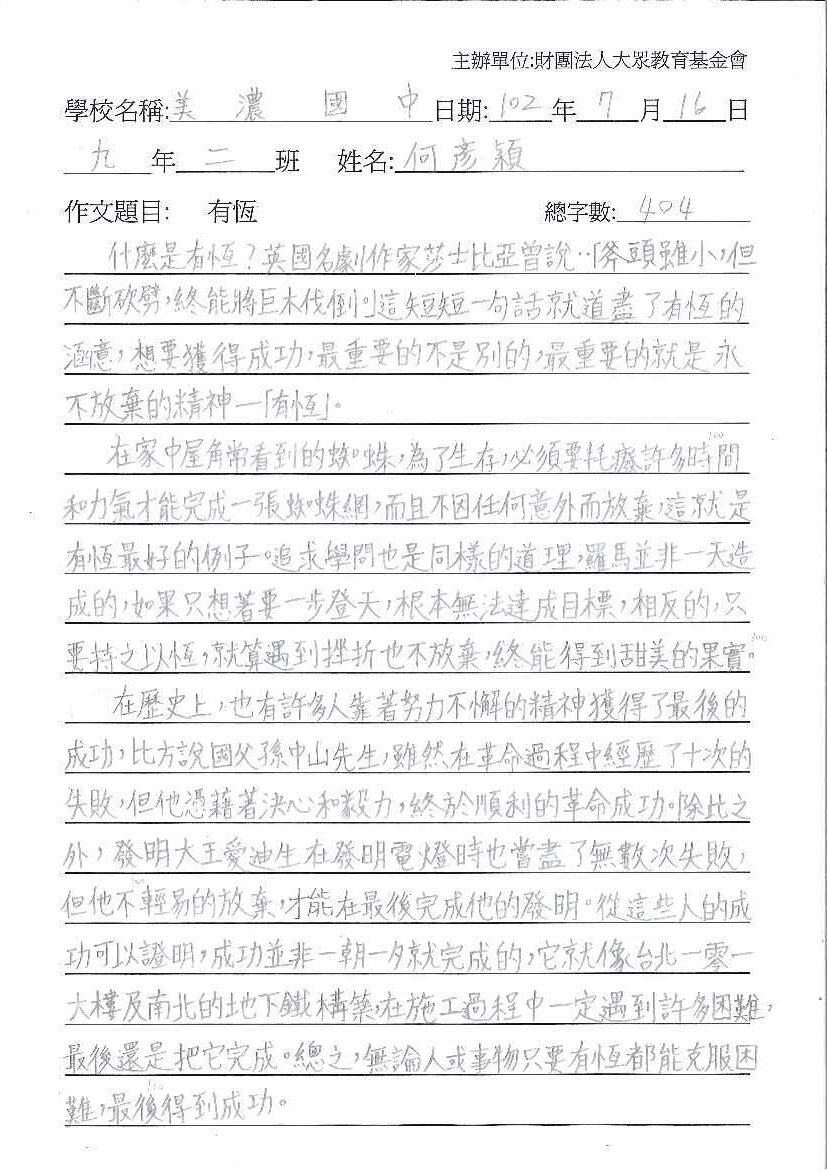 主辦單位:財團法人大眾教育基金會
學校名稱:美濃國中日期:102年7月16日
九年二班 姓名:何彥穎
作文題目: 有恆 總字數:404
什麼是有恆?英國名劇作家莎士比亞曾說:「斧頭雖小,但
不斷砍劈,終能將巨木伐倒。」這短短一句話就道盡了有恆的
涵意,想要獲得成功,最重要的不是別的,最重要的就是永
不放棄的精神—「有恆」。
在家中屋角常看到的蜘蛛,為了生存,必須要耗廢許多時間
和力氣才能完成一張蜘蛛網,而且不因任何意外而放棄,這就是
有恆最好的例子。追求學問也是同樣的道理,羅馬並非一天造
成的,如果只想著要一步登天,根本無法達成目標,相反的,只
要持之以恆,就算遇到挫折也不放棄,終能得到甜美的果實。
在歷史上,也有許多人靠著努力不懈的精神獲得了最後的
成功,比方說國父孫中山先生,雖然在革命過程中經歷了十次的
失敗,但他憑藉著決心和毅力,終於順利的革命成功。除此之
外,發明大王愛迪生在發明電燈時也嘗盡了無數次失敗,
但他不輕易的放棄,才能在最後完成他的發明。從這些人的成
功可以證明,成功並非一朝一夕就完成的,它就像台北一零一
大樓及南北的地下鐵構築,在施工過程中一定遇到許多困難,
最後還是把它完成。總之,無論人或事物只要有恆都能克服困
難,最後得到成功。